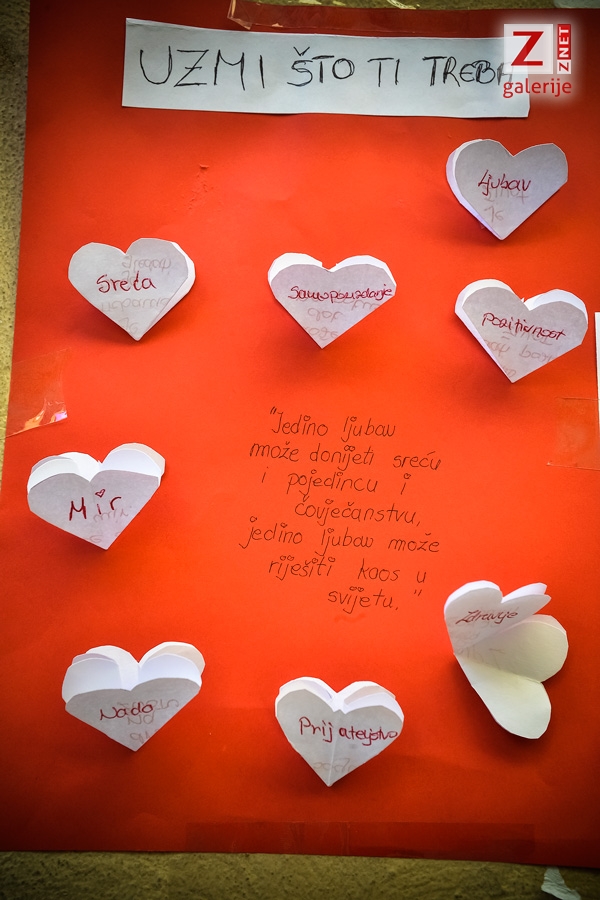 UZMI ŠTO TI TREBA
Z ZNET
galerije
Ljubav
Sreća
Samopouzdanje
Pozitivnost
Mir
"Jedino ljubav
može donijeti sreću
i pojedincu i
čovječanstvu,
jedino ljubav može
riješiti kaos u
svijetu."
Zdravlje
Nada
Prijateljstvo